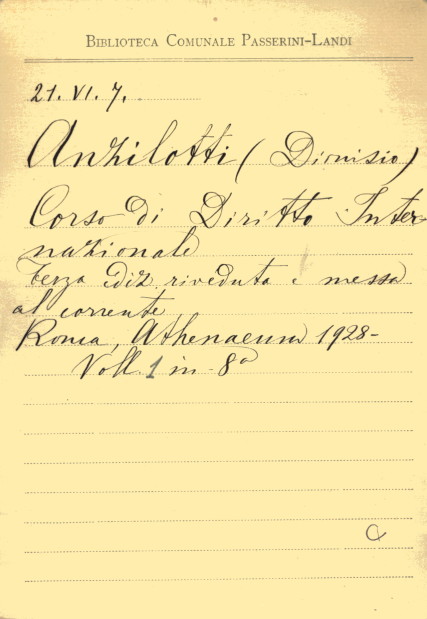 BIBLIOTECA COMUNALE PASSERINI-LANDI
21. VI. 7.
Anzilotti (Dionisio)
Corso di Diritto Inter-
nazionale
Terza ediz. riveduta e messa
al corrente
Roma, Athenaeum 1928-
Voll. 1 in-8°
C